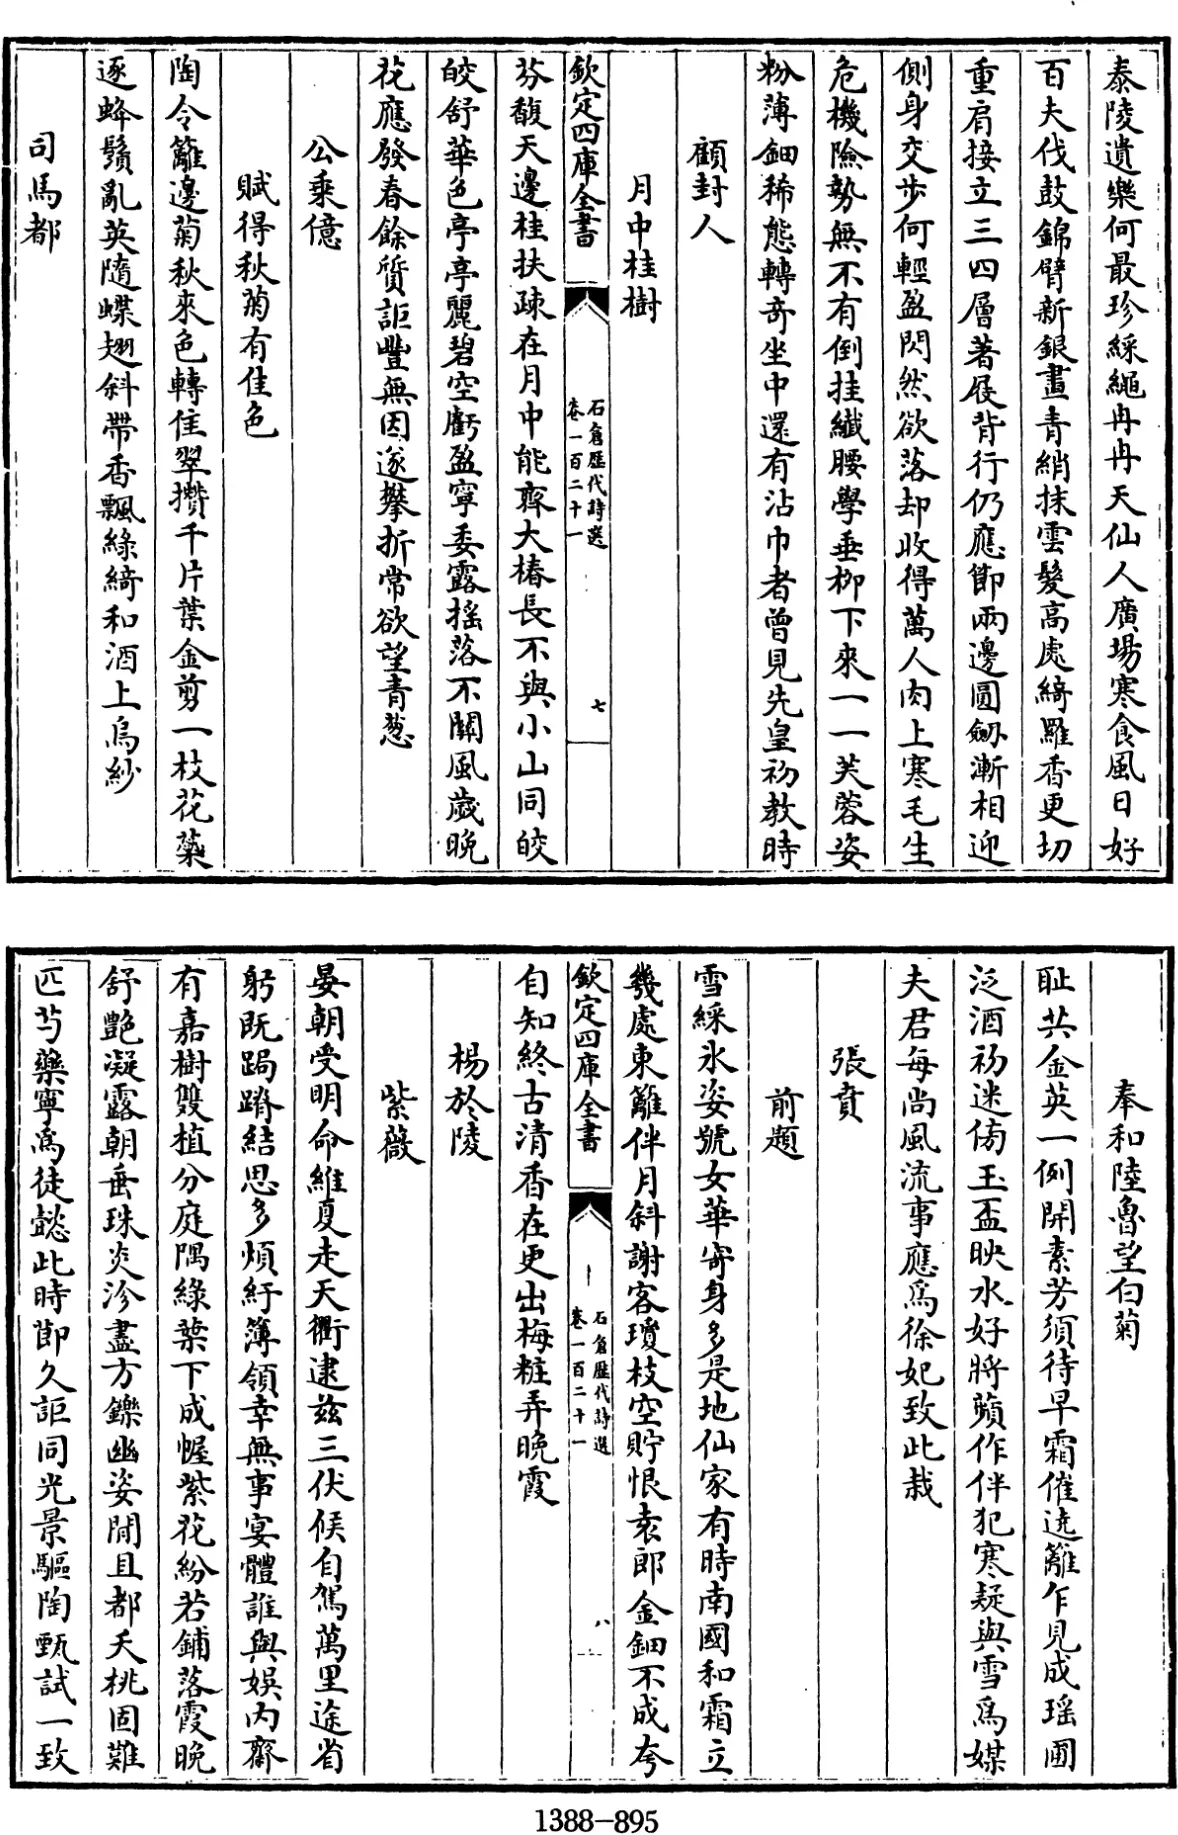 泰陵遺樂何最珍綵繩冉冉天仙人廣場寒食風日好
百夫伐鼓錦臂新銀畫青綃抹雲髮高處綺羅香更切
重肩接立三四層著屐背行仍應節兩邊圓劒漸相迎
側身交步何輕盈閃然欲落却收得萬人肉上寒毛生
危機險勢無不有倒挂纖腰學垂柳下來一一芙蓉姿
粉薄鈿稀態轉奇坐中還有沾巾者曾見先皇初教時
顧封人
月中桂樹
欽定四庫全書
石倉歷代詩選
卷一百二十一
七
芬馥天邊桂扶疎在月中能齊大椿長不與小山同皎
皎舒華色亭亭麗碧空虧盈寧委露揺落不關風歲晚
花應發春餘質詎豐無因遂攀折常欲望青葱
公乘億
賦得秋菊有佳色
陶令籬邊菊秋來色轉佳翠攢千片葉金剪一枝花蘂
逐蜂鬚亂英隨蝶翅斜帶香飄綠綺和酒上烏紗
司馬都
奉和陸魯望白菊
耻共金英一例開素芳須待早霜催遶籬乍見成瑶圃
泛酒初迷傍玉盃映水好將蘋作伴犯寒疑與雪爲媒
夫君每尚風流事應爲徐妃致此栽
張賁
前題
雪綵氷姿號女華寄身多是地仙家有時南國和霜立
幾處東籬伴月斜謝客瓊枝空貯恨袁郎金鈿不成夸
欽定四庫全書
石倉歷代詩選
卷一百二十一
八
自知終古清香在更出梅粧弄晚霞
楊於陵
紫薇
晏朝受明命維夏走天衢逮兹三伏候自駕萬里途省
躬既跼蹐結思多煩紆簿領幸無事宴體誰與娛内齋
有嘉樹雙植分庭隅綠葉下成幄紫花紛若鋪落霞晩
舒艶凝露朝垂珠炎沴盡方鑠幽姿閒且都夭桃固難
匹芍藥寧爲徒懿此時節久詎同光景驅陶甄試一致
1388-895